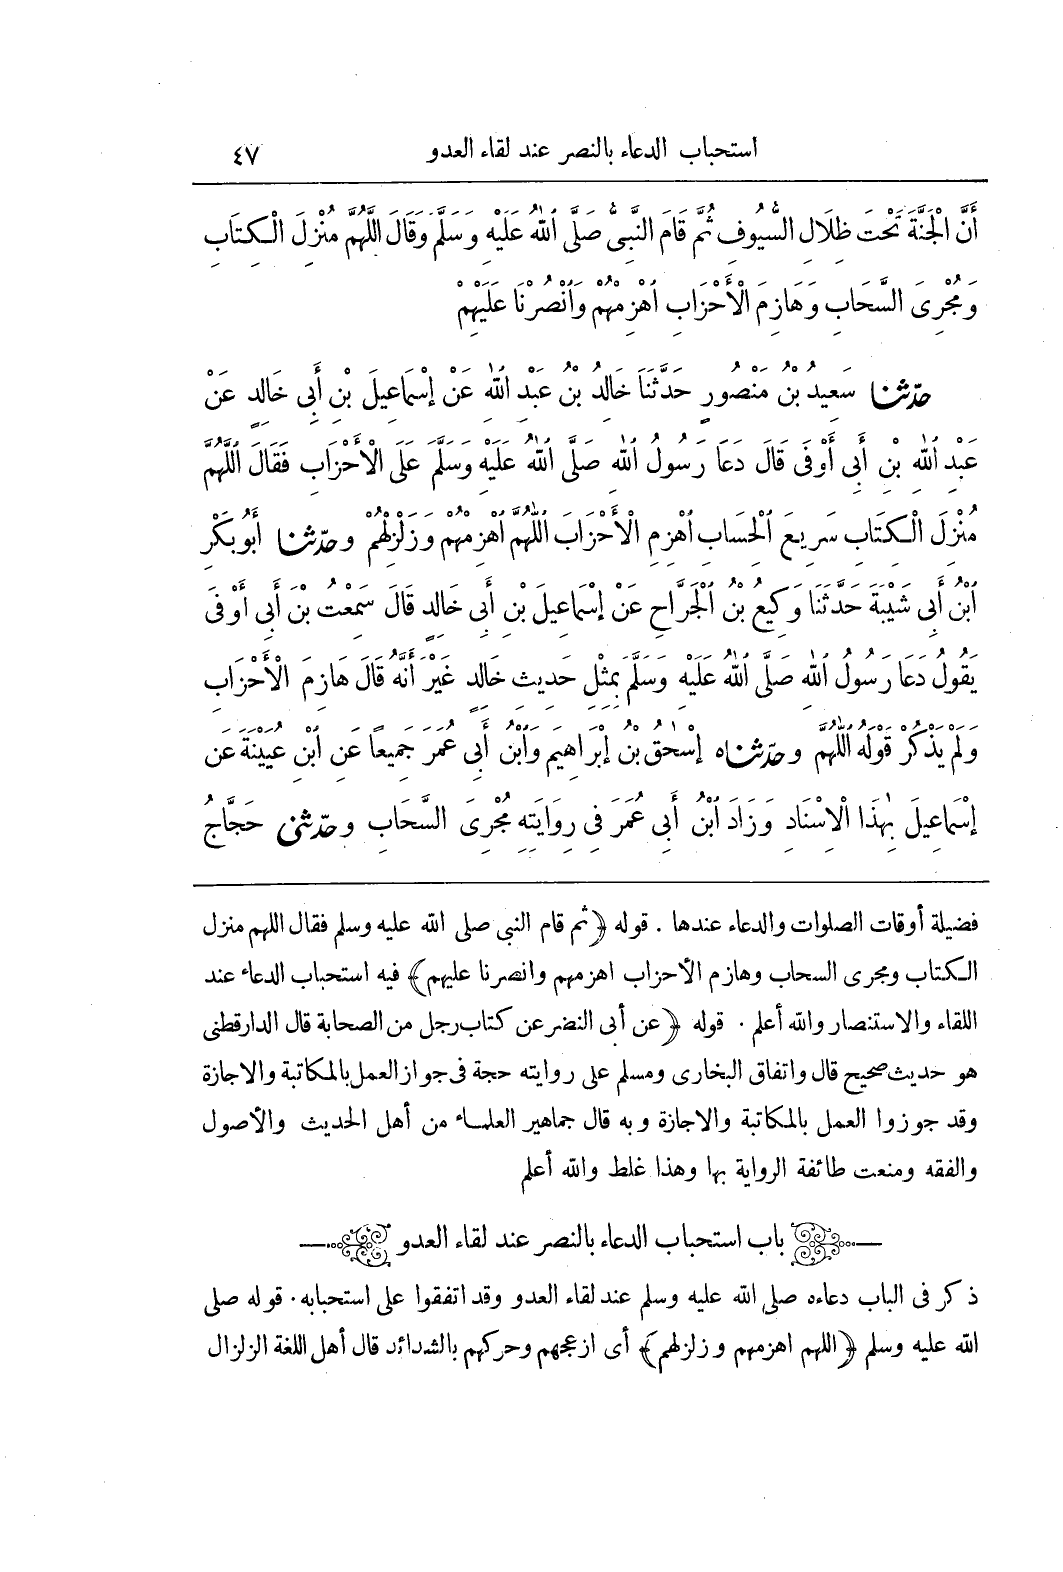 استحباب الدعاء بالنصر عند لقاء العدو ٤٧
أَنَّ الْجَنَّةَ تَحْتَ ظِلَالِ السُّيُوفِ ثُمَّ قَامَ النَّبِىُّ صَلَّى اللهُ عَلَيْهِ وَسَلَّمَ وَقَالَ اللَّهُمَّ مُنْزِلَ الْكِتَابِ
وَمُجْرِىَ السَّحَابِ وَهَازِمَ الْأَحْزَابِ اهْزِمْهُمْ وَانْصُرْنَا عَلَيْهِمْ
حدّثنا سَعِيدُ بْنُ مَنْصُورٍ حَدَّثَنَا خَالِدُ بْنُ عَبْدِ اللهِ عَنْ إِسْمَاعِيلَ بْنِ أَبِى خَالِدٍ عَنْ
عَبْدِ اللهِ بْنِ أَبِى أَوْفَى قَالَ دَعَا رَسُولُ اللهِ صَلَّى اللهُ عَلَيْهِ وَسَلَّمَ عَلَى الْأَحْزَابِ فَقَالَ اللَّهُمَّ
مُنْزِلَ الْكِتَابِ سَرِيعَ الْحِسَابِ اهْزِمِ الْأَحْزَابَ اللَّهُمَّ اهْزِمْهُمْ وَزَلْزِلْهُمْ وحدّثنا أَبُو بَكْرِ
ابْنُ أَبِى شَيْبَةَ حَدَّثَنَا وَكِيعُ بْنُ الْجَرَّاحِ عَنْ إِسْمَاعِيلَ بْنِ أَبِى خَالِدٍ قَالَ سَمِعْتُ بْنَ أَبِى أَوْفَى
يَقُولُ دَعَا رَسُولُ اللهِ صَلَّى اللهُ عَلَيْهِ وَسَلَّمَ بِمِثْلِ حَدِيثِ خَالِدٍ غَيْرَ أَنَّهُ قَالَ هَازِمَ الْأَحْزَابِ
وَلَمْ يَذْكُرْ قَوْلَهُ اللَّهُمَّ وحدّثناه إِسْحٰقُ بْنُ إِبْرَاهِيمَ وَابْنُ أَبِى عُمَرَ جَمِيعًا عَنِ ابْنِ عُيَيْنَةَ عَنْ
إِسْمَاعِيلَ بِهٰذَا الْإِسْنَادِ وَزَادَ ابْنُ أَبِى عُمَرَ فِى رِوَايَتِهِ مُجْرِىَ السَّحَابِ وحدّثنى حَجَّاجُ
فضيلة أوقات الصلوات والدعاء عندها . قوله ﴿ثم قام النبى صلى الله عليه وسلم فقال اللهم منزل
الكتاب ومجرى السحاب وهازم الأحزاب اهزمهم وانصرنا عليهم﴾ فيه استحباب الدعاء عند
اللقاء والاستنصار والله أعلم . قوله ﴿عن أبى النضر عن كتاب رجل من الصحابة قال الدارقطنى
هو حديث صحيح قال واتفاق البخارى ومسلم على روايته حجة فى جواز العمل بالمكاتبة والاجازة
وقد جوزوا العمل بالمكاتبة والاجازة وبه قال جماهير العلماء من أهل الحديث والأصول
والفقه ومنعت طائفة الرواية بها وهذا غلط والله أعلم
باب استحباب الدعاء بالنصر عند لقاء العدو
ذكر فى الباب دعاءه صلى الله عليه وسلم عند لقاء العدو وقد اتفقوا على استحبابه. قوله صلى
الله عليه وسلم ﴿اللهم اهزمهم وزلزلهم﴾ أى ازعجهم وحركهم بالشدائد قال أهل اللغة الزلزال